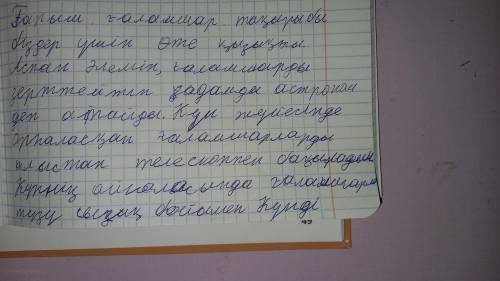 Ғарыш, ғаламшар тақырыбы
біздер үшін өте қызықты
Аспан әлемін, ғаламшарды
зерттейтін адамды астроном
деп атайды. Күн жүйесінде
орналасқан ғаламшарларды
алыстан телескоппен бақылайды
Күннің айналасында ғаламшарлар
түзу сызық бойымен Күнді
49